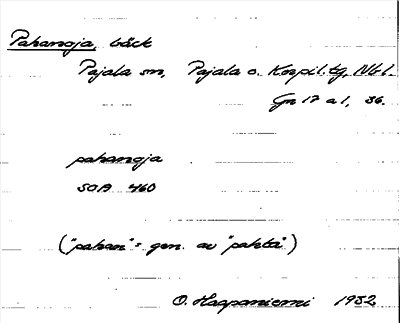 Pahanoja, bäck
Pajala sn, Pajala o. Korpil. tg, Nbl.
Gn 17 a 1, 36.
pahanoja
SOA 460
("pahan" = gen. av "pahta")
O. Haapaniemi 1932